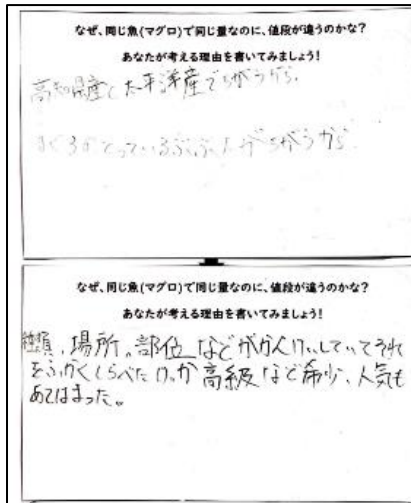 なぜ、同じ魚(マグロ)で同じ量なのに、値段が違うのかな?
あなたが考える理由を書いてみましょう!
高知県産と太平洋産でちがうから。
まぐろのとっているぶぶんがちがうから
なぜ、同じ魚(マグロ)で同じ量なのに、値段が違うのかな?
あなたが考える理由を書いてみましょう!
種類、場所。部位などがかんけいしていてそれ
をふかくしらべたけっか高級など希少、人気も
あてはまった。